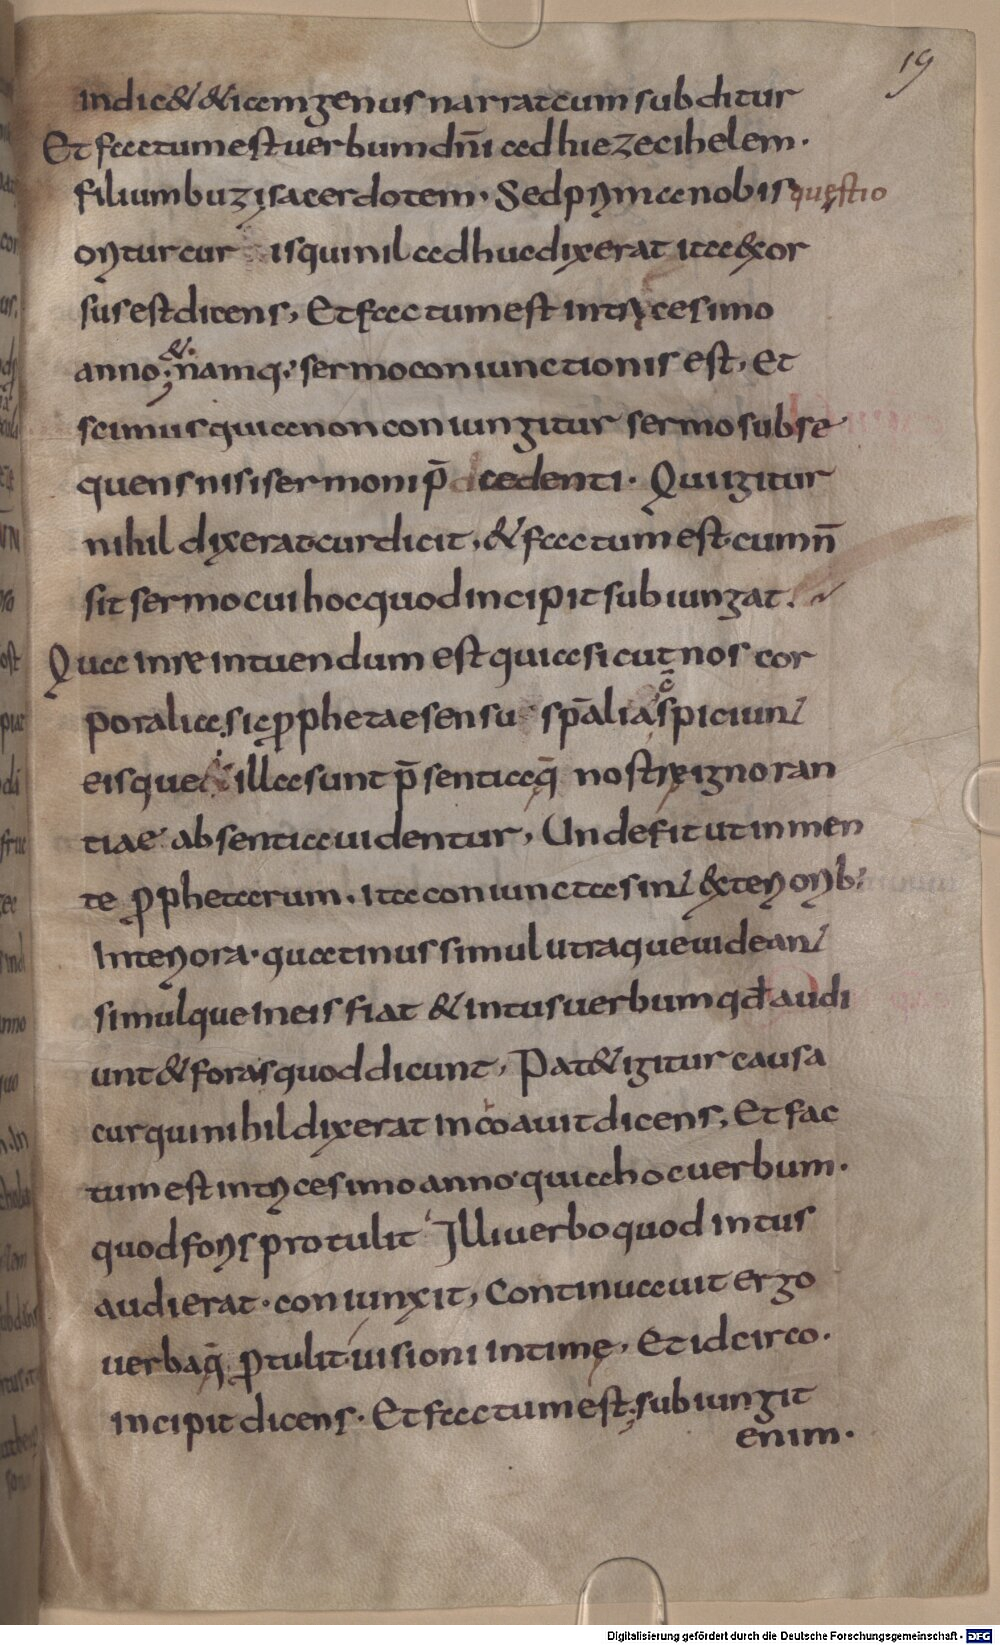 19
indic& &iamgenus narratcum subditur
Et factum est uerbum dn̄i ad hiezecihelem·
filium buzi sacerdotem· Sed prymcenobis questio
oritur cur is qui nil adhuc dixerat ita exor
sus est dicens, Et factum est in tricesimo
anno; &· namq; sermo coniunctionis est, Et
scimus quia non coniungitur sermo subse
quens nisi sermoni p̄cedenti· Qui igitur
nihil dixerat cur dicit, & factum est· cum n̄
sit sermo cui hoc quod incipit subiungat·
Qua in re intuendum est quia sicut nos cor
poralia, sic ꝓphetae sensu sp̄alia c̄spiciunt
eisque & illa sunt p̄sentia q̄ nostrę ignoran
tiae absentia uidentur, Unde fit ut in men
te ꝓphetarum· ita coniuncta sint exteriorib;
interiora· quatinus simul utraque uideant
simulque in eis fiat & intus uerbum qđ audi
unt & foras quod dicunt, Pat& igitur causa
cur qui nihil dixerat incoauit dicens, Et fac
tum est in tricesimo anno· quia hoc uerbum·
quod foris protulit Illi uerbo quod intus
audierat· coniunxit, Continuauit ergo
uerba q̄ ꝓtulit uisioni intimę, Et idcirco·
incipit dicens· Et factum est; subiungit
enim·
Digitalisierung gefördert durch die Deutsche Forschungsgemeinschaft - DFG